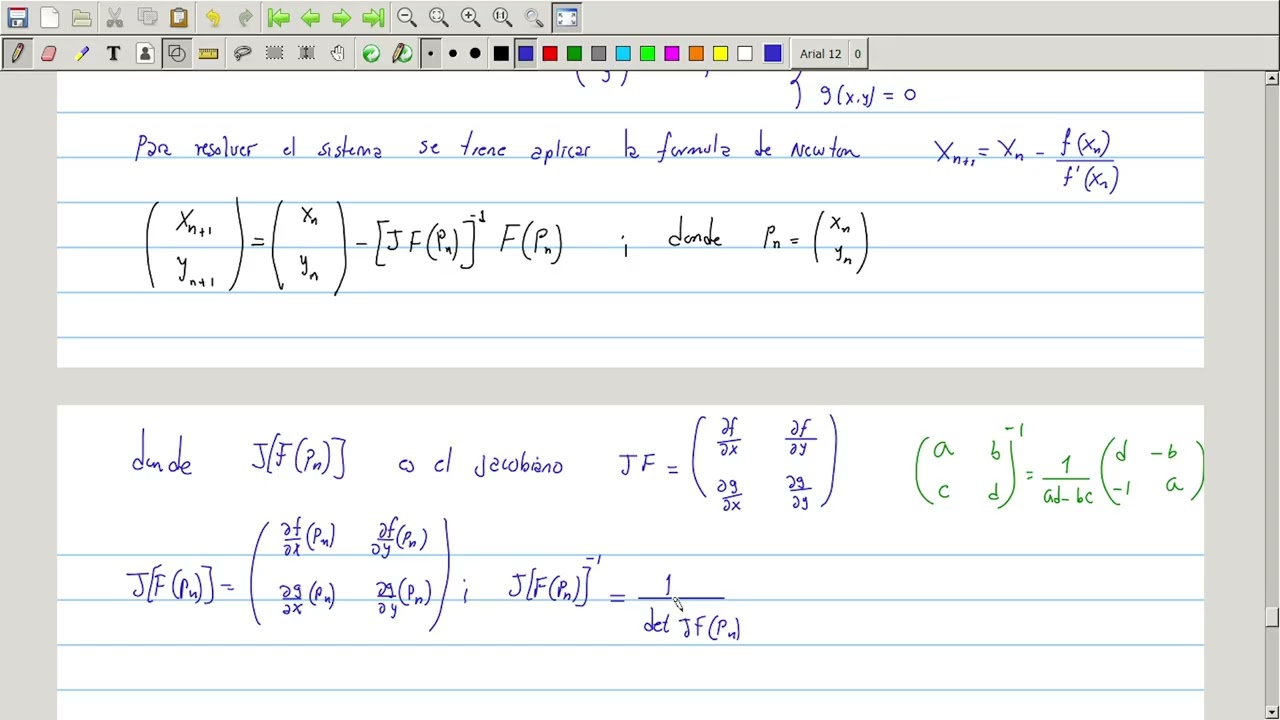 T
Arial 12 0
( y )
g(x,y) = 0
Para resolver el sistema se tiene aplicar la formula de Newton X_{n+1} = X_n - f(X_n) / f'(X_n)
( X_{n+1} y_{n+1} ) = ( X_n y_n ) - [JF(P_n)]^{-1} F(P_n) ; donde P_n = ( X_n y_n )
donde J[F(P_n)] es el jacobiano JF = ( ∂f/∂x ∂f/∂y ∂g/∂x ∂g/∂y ) ( a b c d )^{-1} = 1/(ad-bc) ( d -b -1 a )
J[F(P_n)] = ( ∂f/∂x(P_n) ∂f/∂y(P_n) ∂g/∂x(P_n) ∂g/∂y(P_n) ) ; J[F(P_n)]^{-1} = 1 / det JF(P_n)